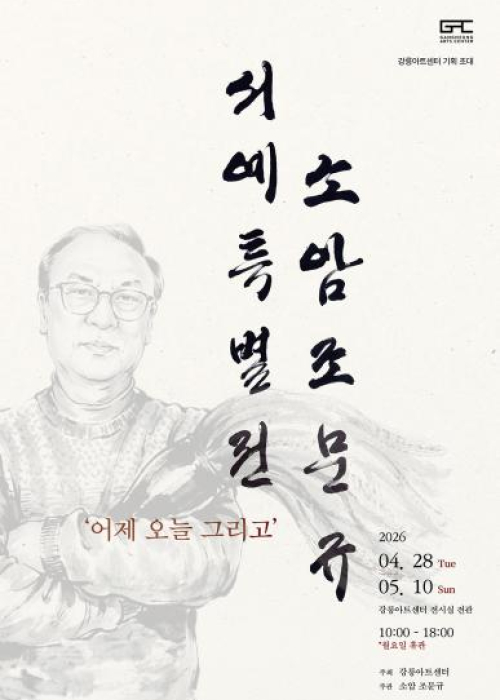 GAC
GANGNEUNG
ARTS CENTER
강릉아트센터 기획 초대
소암조문규
서예특별전
'어제 오늘 그리고'
2026
04. 28 Tue
05. 10 Sun
강릉아트센터 전시실 전관
10:00 - 18:00
*월요일 휴관
주최 강릉아트센터
주관 소암 조문규